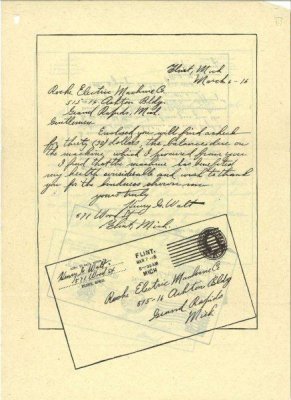 Flint, Mich
March 6-16
Rocke Electric Machine Co
515-16 Ashton Bldg.
Grand Rapids, Mich.
Gentlemen
Enclosed you will find a check
for thirty (30) dollars, the balance due on
the machine which I procured from you
I find that the machine has benefited
my health considerable and want to thank
you for the kindness shown me
yours truly
Henry G. Walt
511 Wood St
Flint, Mich.
Henry G. Walt
511 Wood St
Flint, Mich.
FLINT.
MICH
Rocke Electric Machine Co
515-16 Ashton Bldg
Grand Rapids
Mich